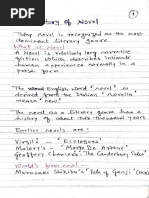 1
History of Novel
Today novel is recognized as the most
dominant literary genre.
What is Novel
A Novel is relatively long narrative
fiction which describes intimate
human experience normally in a
prose form
The English word "novel" is
derived from the Italian "novella"
means "new".
The novel as a literary genre has a
history of about two thousand years.
Earlier novels are :
Virgil's - Eclogues
Malory's - Morte De Arthur
Geoffrey Chaucer - The Canterbury Tales
World's first novel
Murasaki Shikibu's Tale of Genji (1010)